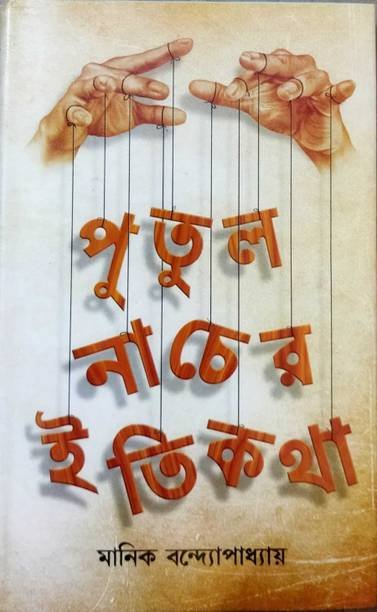 পুতুল
নাচের
ইতিকথা
মানিক বন্দ্যোপাধ্যায়